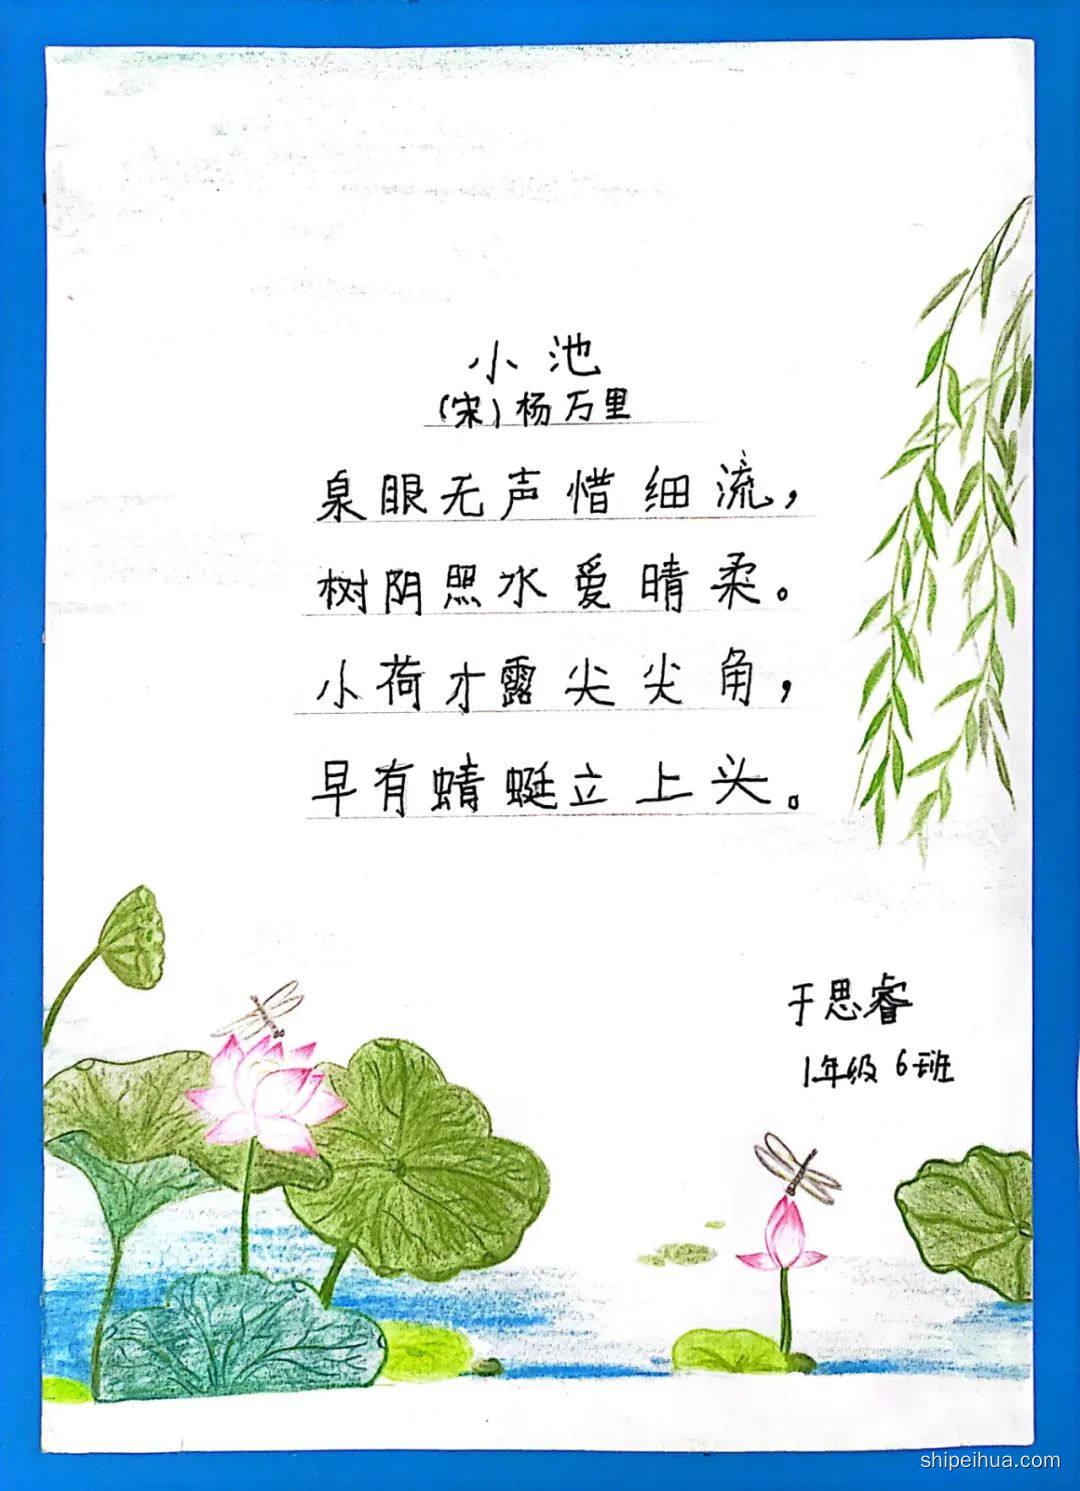 小池
(宋)杨万里
泉眼无声惜细流，
树阴照水爱晴柔。
小荷才露尖尖角，
早有蜻蜓立上头。
于思睿
1年级6班
shipeihua.com